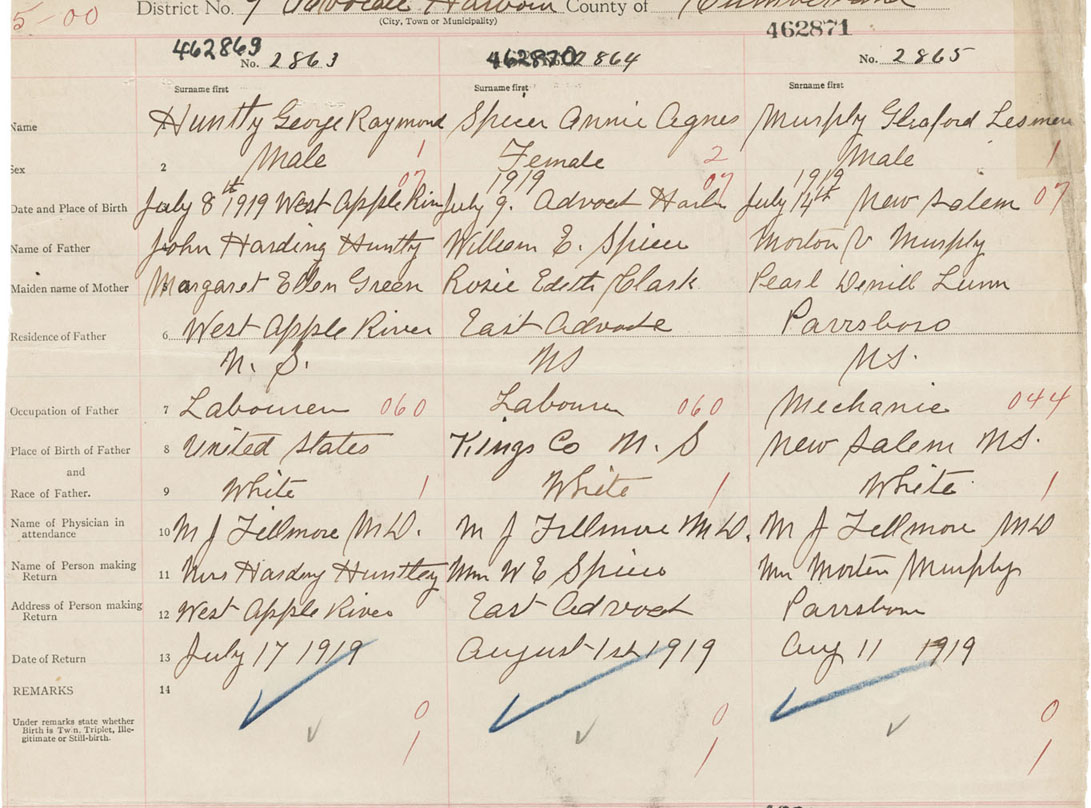 5-00
District No. 7 Advocate Harbour County of Cumberland
(City, Town or Municipality)
462869 462870 462871
No. 2863 2864 No. 2865
Surname first Surname first Surname first
Name Huntly George Raymond Spicer Annie Agnes Murphy
Sex 2 Male 1 Female 2 Male 1
07 1919 07 1919
Date and Place of Birth July 8th 1919 West Apple Riv July 9. Advoct Harb July 14th New Salem 07
Name of Father John Harding Huntly William E. Spicer Morton V Murphy
Maiden name of Mother Margaret Ellen Green Rosie Edith Clark Pearl Lunn
Residence of Father 6 West Apple River East Advocate Parrsboro
N. S. NS NS.
Occupation of Father 7 Labourer 060 Labourer 060 Mechanic 044
Place of Birth of Father 8 United States Kings Co N. S New Salem NS.
and
Race of Father. 9 White 1 White 1 White 1
Name of Physician in
attendance 10 M J Fillmore M.D. M J Fillmore M.D. M J Fillmore MD
Name of Person making
Return 11 Mrs Harding Huntley Mrs W E Spicer Mrs Morten Murphy
Address of Person making
Return 12 West Apple River East Advoct Parrsboro
Date of Return 13 July 17 1919 August 1st 1919 Aug 11 1919
REMARKS 14
Under remarks state whether
Birth is Twin, Triplet, Ille-
gitimate or Still-birth.
0 0 0
1 1 1